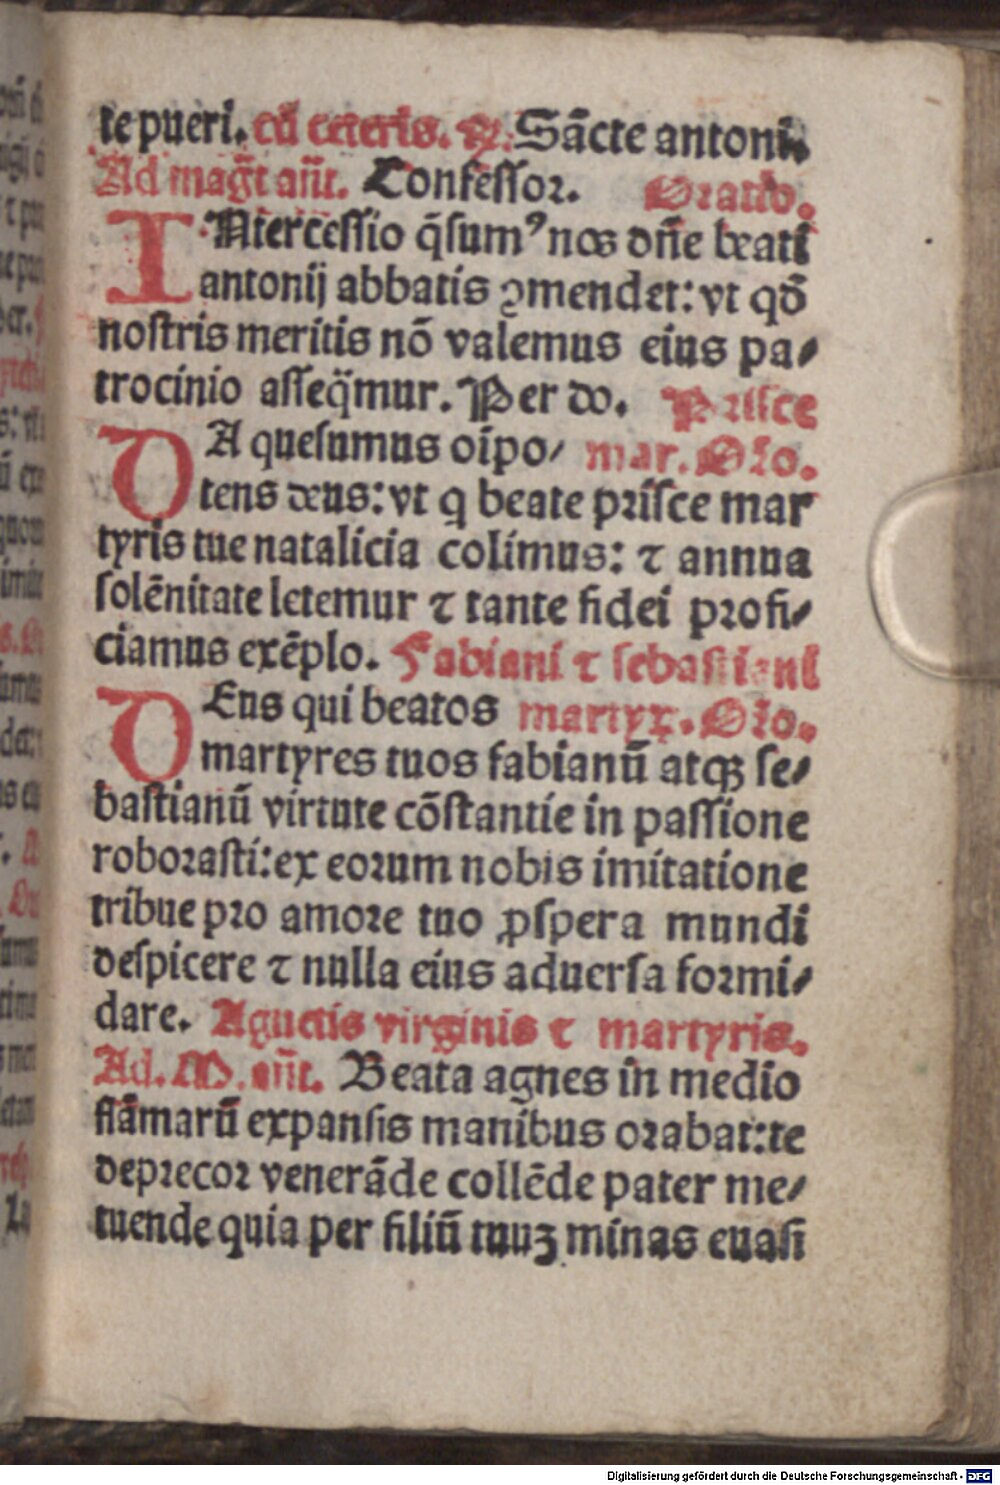 te pueri. cū ceteris. ꝶ. Sācte antoni.
Ad magt̄ an̄t. Confessoꝛ. Oratio.
INtercessio q̄sumꝰ nos dn̄e beati
antonij abbatis ꝯmendet: vt qđ
nostris meritis nō valemus eius pa⸗
trocinio asseq̄mur. Per do. Prisce
DA quesumus oīpo⸗ mar. Oꝛo.
tens deus: vt q beate pꝛisce mar
tyris tue natalicia colimus: ⁊ annua
solēnitate letemur ⁊ tante fidei pꝛofi⸗
ciamus exēplo. Fabiani ⁊ sebastiani
DEus qui beatos martyꝝ. Oꝛo.
martyres tuos fabianū atqꝫ se⸗
bastianū virtute cōstantie in passione
roboꝛasti: ex eoꝛum nobis imitatione
tribue pꝛo amoꝛe tuo ꝓspera mundi
despicere ⁊ nulla eius aduersa foꝛmi⸗
dare. Agnetis virginis ⁊ martyris.
Ad. M. an̄t. Beata agnes in medio
flāmarū expansis manibus oꝛabat: te
depꝛecoꝛ venerāde collēde pater me⸗
tuende quia per filiū tuuꝫ minas euasi
Digitalisierung gefördert durch die Deutsche Forschungsgemeinschaft - DFG